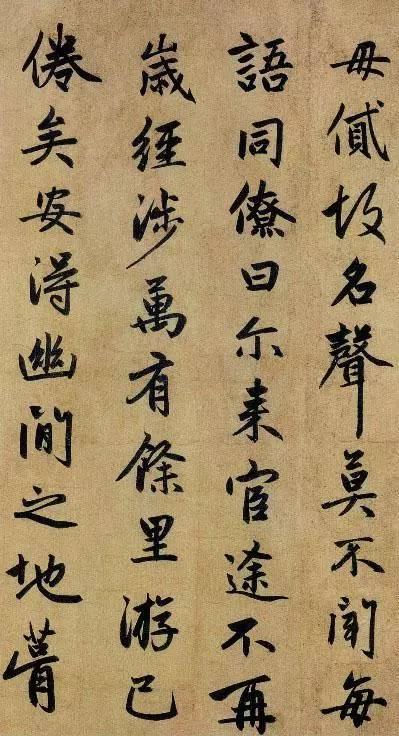 毋貸故名聲莫不聞每
語同僚曰尔来官途不再
歲經涉萬有餘里游已
倦矣安得幽閒之地